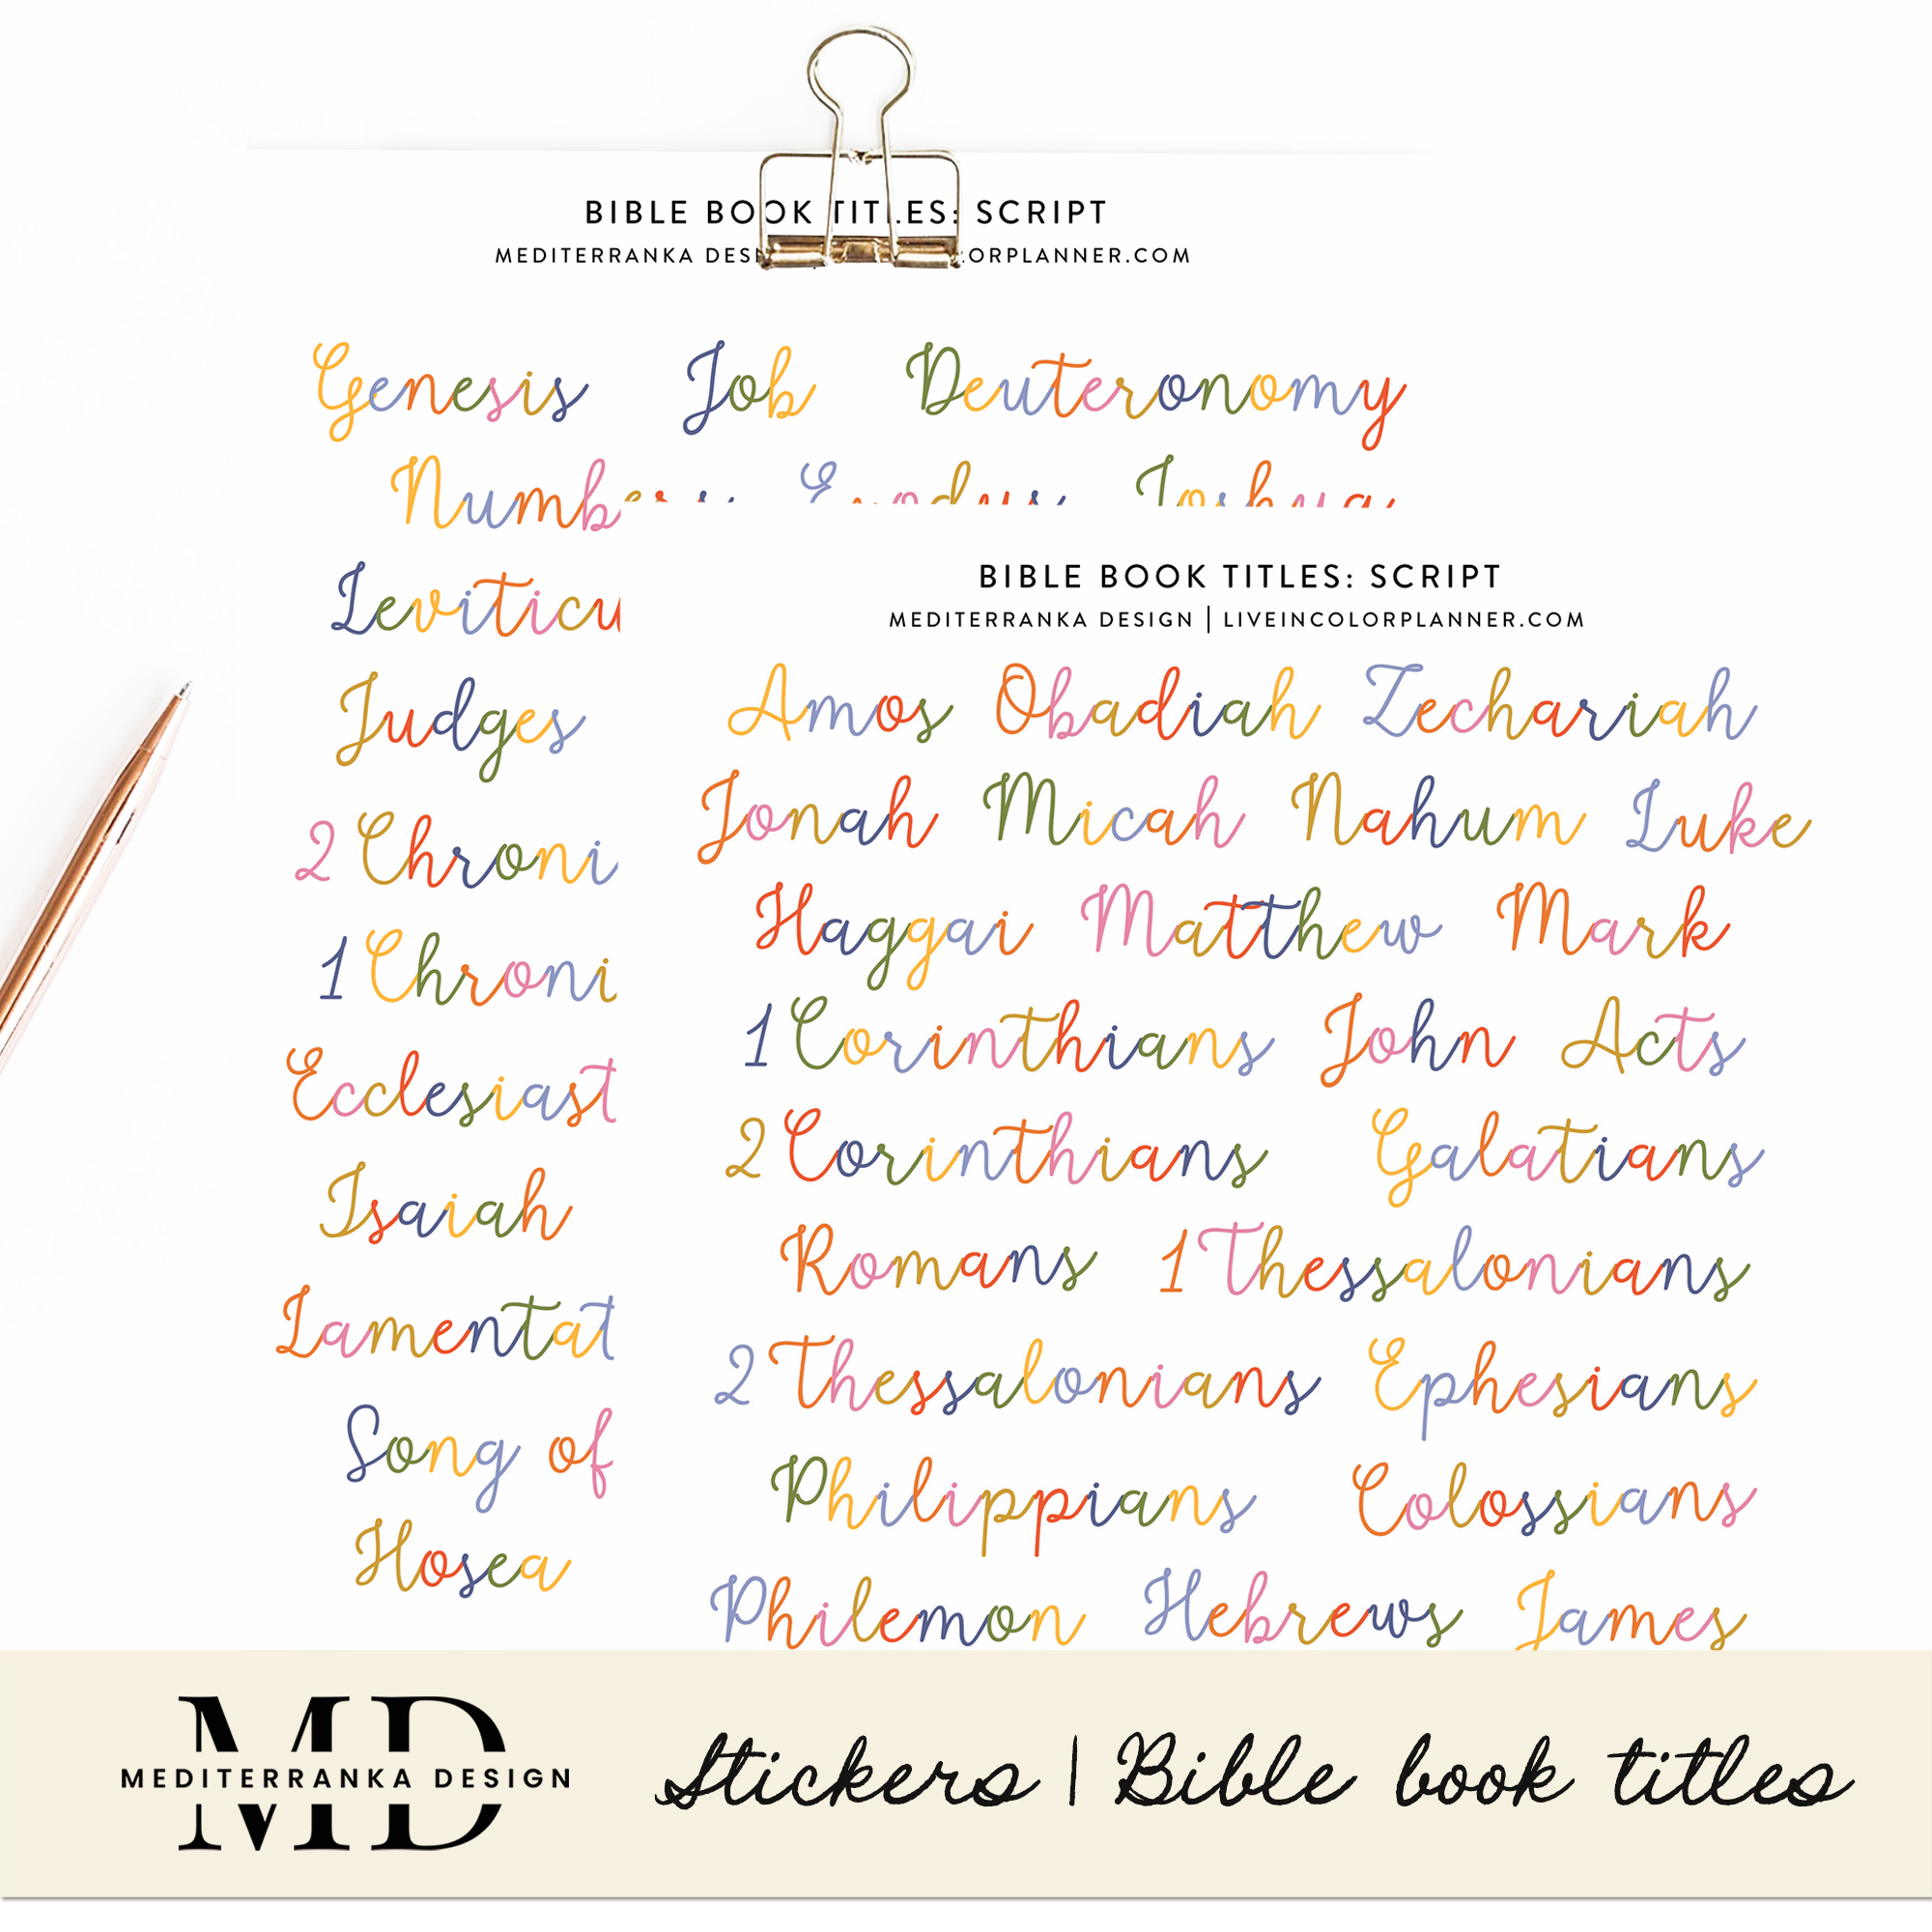 BIBLE BOOK TITLES: SCRIPT
MEDITERRANKA DESI ORPLANNER.COM
Genesis Job Deuteronomy
Numb
Leviticu
Judges
2 Chroni
1 Chroni
Ecclesiast
Isaiah
Lamentat
Song of
Hosea
BIBLE BOOK TITLES: SCRIPT
MEDITERRANKA DESIGN | LIVEINCOLORPLANNER.COM
Amos Obadiah Zechariah
Jonah Micah Nahum Luke
Haggai Matthew Mark
1 Corinthians John Acts
2 Corinthians Galatians
Romans 1 Thessalonians
2 Thessalonians Ephesians
Philippians Colossians
Philemon Hebrews James
MD
MEDITERRANKA DESIGN
Stickers | Bible book titles